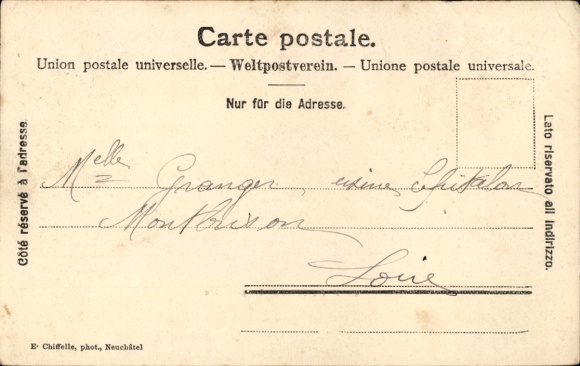 Carte postale.
Union postale universelle. — Weltpostverein. — Unione postale universale.
Nur für die Adresse.
Côté réservé à l'adresse.
Lato riservato all indirizzo.
Melle Granger, usine
Montbrison
Loire
E. Chiffelle, phot., Neuchâtel